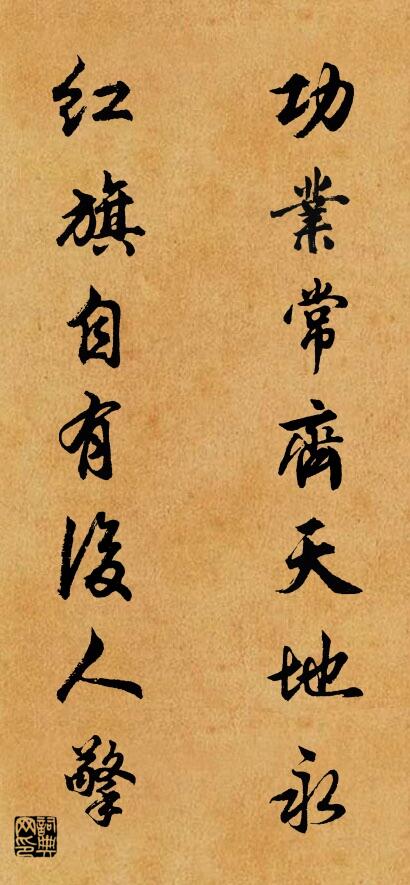 功業常齊天地永
紅旗自有後人擎
詞典網印